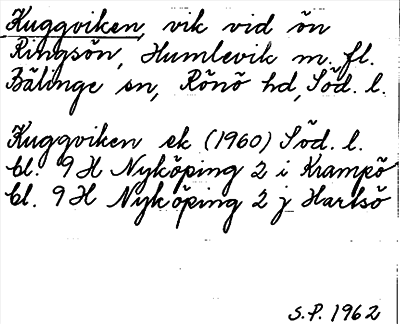 Kuggviken, vik vid ön
Ringsön, Humlevik m. fl.
Bälinge sn, Rönö hd, Söd. l.
Kuggviken ek (1960) Söd. l.
bl. 9 H Nyköping 2 i Krampö
bl. 9 H Nyköping 2 j Hartsö
S.P. 1962